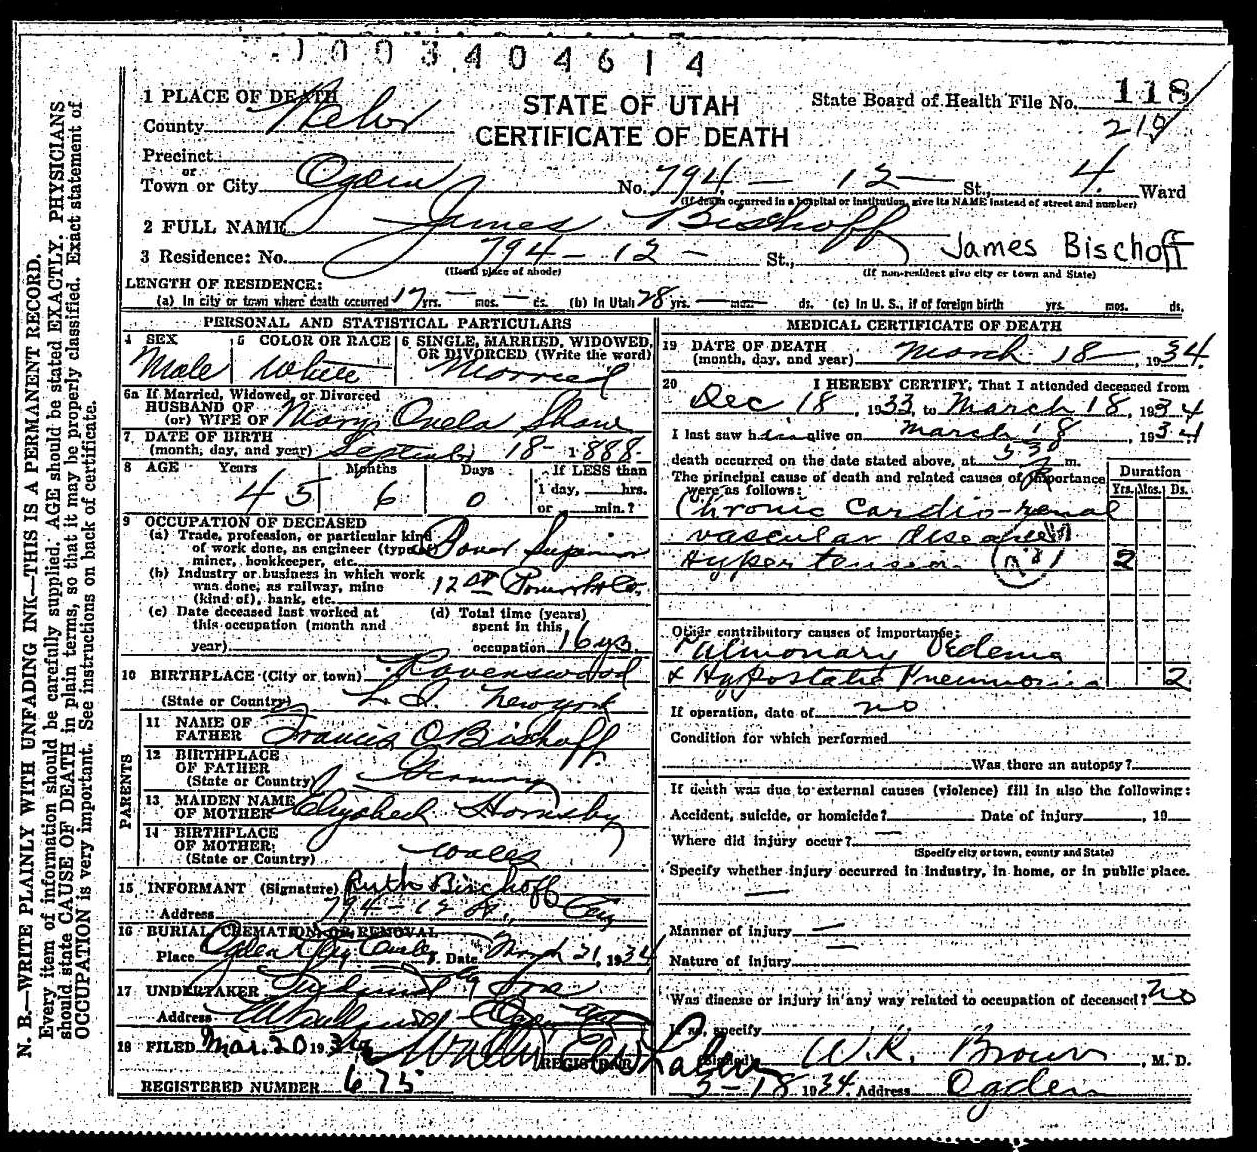 1003404614
1 PLACE OF DEATH
STATE OF UTAH
State Board of Health File No. 118
County Weber
CERTIFICATE OF DEATH
210
Precinct
or
Town or City Ogden No. 794 - 12 - St., 4. Ward
(If death occurred in a hospital or institution, give its NAME instead of street and number)
2 FULL NAME James Bischoff
James Bischoff
3 Residence: No. 794 - 12 - St.,
(Usual place of abode) (If non-resident give city or town and State)
LENGTH OF RESIDENCE:
(a) In city or town where death occurred 17 yrs. — mos. — ds. (b) In Utah 28 yrs. — mos. ds. (c) In U. S., if of foreign birth yrs. mos. ds.
PERSONAL AND STATISTICAL PARTICULARS
4 SEX 5 COLOR OR RACE 6 SINGLE, MARRIED, WIDOWED,
OR DIVORCED (Write the word)
Male White Married
6a If Married, Widowed, or Divorced
HUSBAND OF
(or) WIFE OF Mary Ovela Shaw
7 DATE OF BIRTH
(month, day, and year) September 18 - 1888.
8 AGE Years Months Days If LESS than
45 6 0 1 day, hrs.
or min.?
9 OCCUPATION OF DECEASED
(a) Trade, profession, or particular kind
of work done, as engineer (type of
miner, bookkeeper, etc.
(b) Industry or business in which work
was done, as railway, mine
(kind of), bank, etc. 12 St
(c) Date deceased last worked at
this occupation (month and
year)
(d) Total time (years)
spent in this
occupation 16 yrs
10 BIRTHPLACE (City or town) Ravenswood
(State or Country) L. I. New York
PARENTS
11 NAME OF
FATHER Francis O Bischoff
12 BIRTHPLACE
OF FATHER
(State or Country) Germany
13 MAIDEN NAME
OF MOTHER Elizabeth Hornsby
14 BIRTHPLACE
OF MOTHER:
(State or Country) Wales
15 INFORMANT (Signature) Ruth Bischoff
Address 794 - 12 St., City
16 BURIAL, CREMATION, OR REMOVAL
Place Ogden City Date March 21, 1934
17 UNDERTAKER
Address
18 FILED Mar. 20 193
REGISTRAR
REGISTERED NUMBER 675
MEDICAL CERTIFICATE OF DEATH
19 DATE OF DEATH
(month, day, and year) March 18 -, 1934.
20 I HEREBY CERTIFY, That I attended deceased from
Dec 18, 1933, to March 18, 1934
I last saw him alive on March 18, 1934
death occurred on the date stated above, at 530 P m.
The principal cause of death and related causes of importance
were as follows:
Duration
Yrs. Mos. Ds.
Chronic Cardio-renal
vascular disease
Hypertension. 2
Other contributory causes of importance:
Pulmonary Oedema
& Hypostatic Pneumonia 2
If operation, date of no
Condition for which performed
Was there an autopsy?
If death was due to external causes (violence) fill in also the following:
Accident, suicide, or homicide? Date of injury , 19
Where did injury occur? —
(Specify city or town, county and State)
Specify whether injury occurred in industry, in home, or in public place.
—
Manner of injury —
Nature of injury —
Was disease or injury in any way related to occupation of deceased? no
If so, specify
(Signed) W. R. Brown, M. D.
3-18 1934 Address Ogden
N. B.—WRITE PLAINLY WITH UNFADING INK—THIS IS A PERMANENT RECORD.
Every item of information should be carefully supplied. AGE should be stated EXACTLY. PHYSICIANS
should state CAUSE OF DEATH in plain terms, so that it may be properly classified. Exact statement of
OCCUPATION is very important. See instructions on back of certificate.